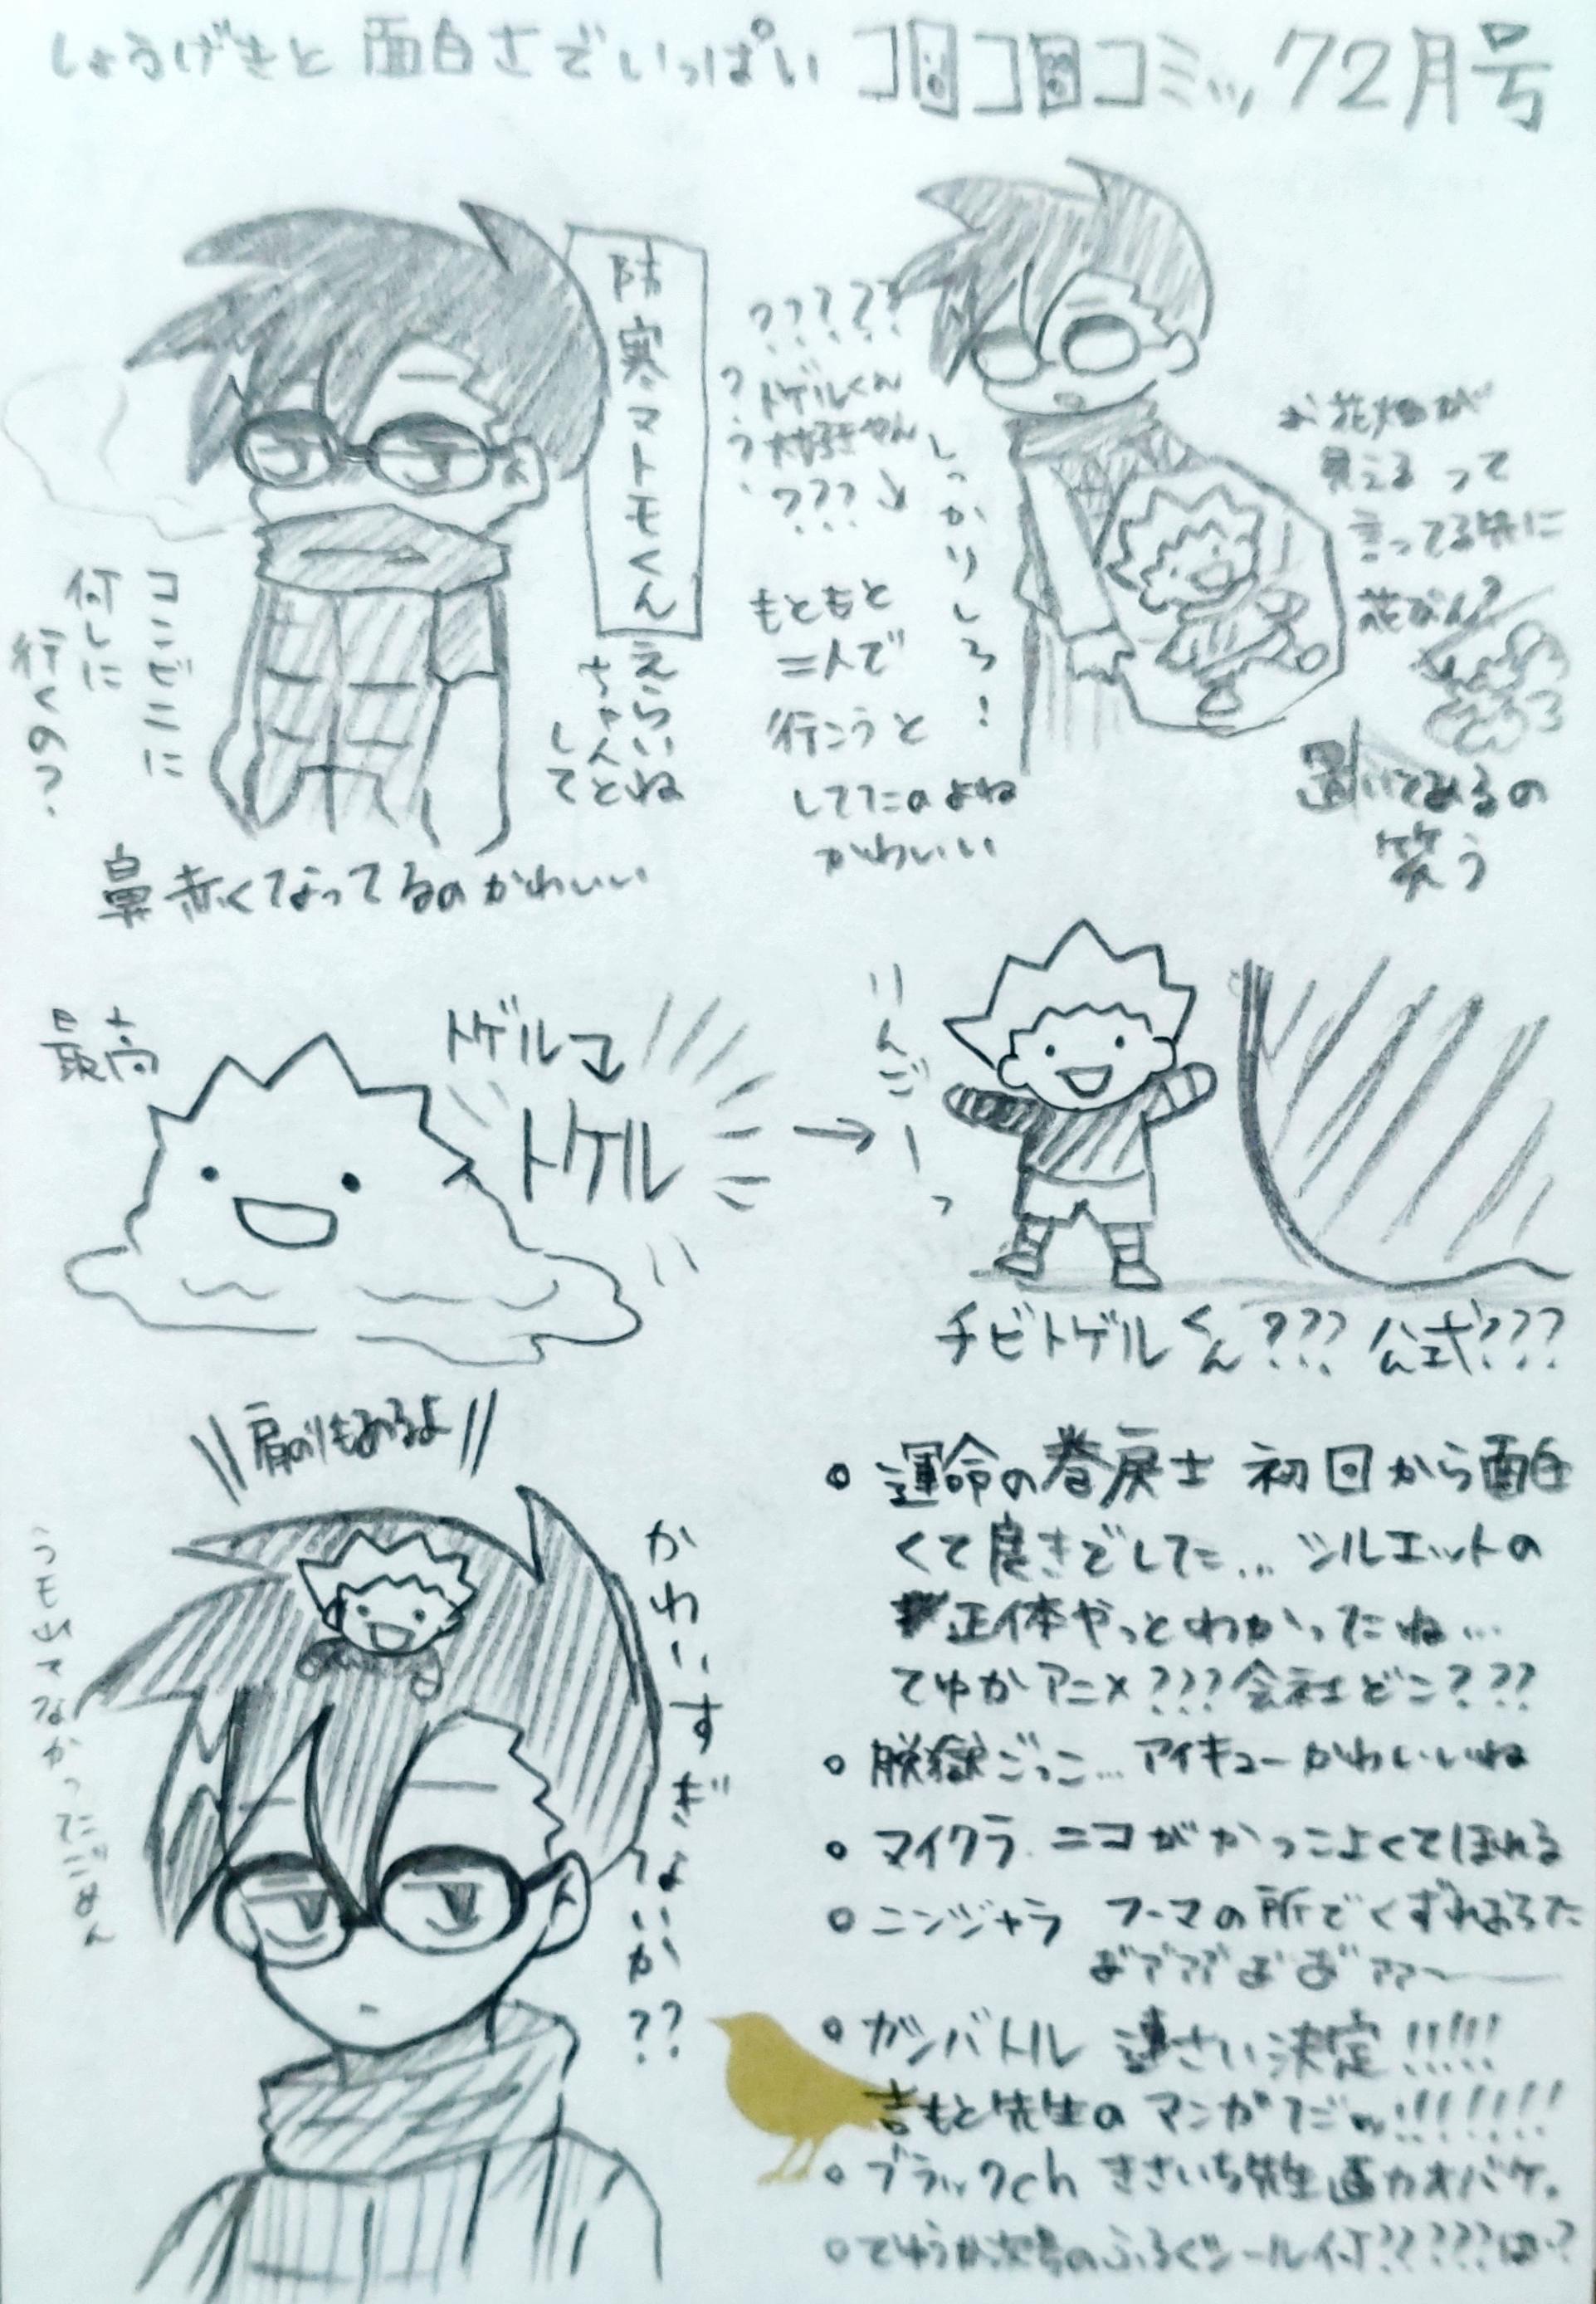 しょうげきと面白さでいっぱいコロコロコミック2月号
防寒マトモくん
えらいね
ちゃんと
して
コンビニに
何しに
行くの?
鼻赤くなってるのかわいい
?????
?トゲルくん
?大好きやん
???
しっかりしろ!
もともと
二人で
行こうと
してたのよね
かわいい
お花畑が
見えるって
言ってる先に
花なん?
置いてみるの
笑う
最高
トゲル
トケル
りんごーっ
チビトゲルくん???公式???
肩のりもあるよ
かわいすぎないか??
うモ出てなかったごめん
・運命の巻戻士 初回から面白
くて良きでした…シルエットの
正体やっとわかったね…
てゆかアニメ???会社どこ???
・脱獄ごっこ…アイキューかわいいね
・マイクラ ニコがかっこよくてほれる
・ニンジャラ フーマの所でくずれおちた
・ガンバトル 連さい決定!!!!!
吉もと先生のマンガだッ!!!!!!!
・ブラックch きさいち先生画力オバケ。
・てゆうか次号のふろくシール付?????は?